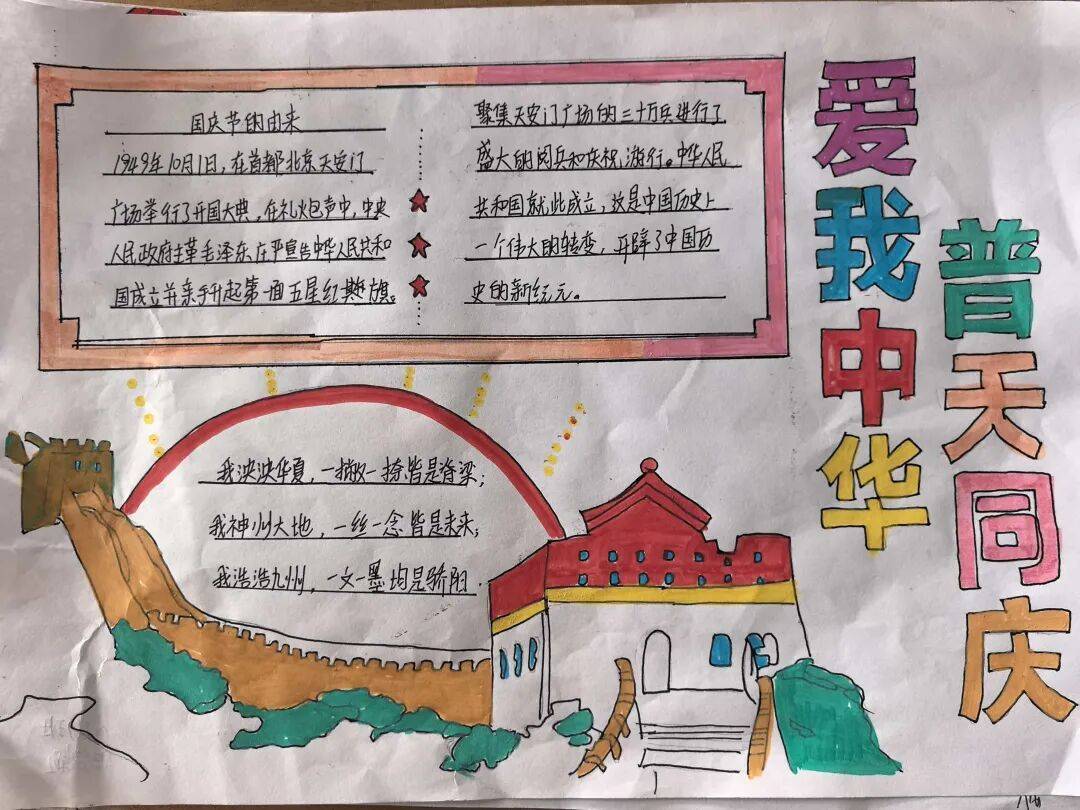 国庆节的由来
1949年10月1日，在首都北京天安门
广场举行了开国大典，在礼火包声中，中央
人民政府主革毛泽东庄严宣告中华人民共和
国成立并亲手升起第一面五星红旗。
聚集天安门广场的三十万兵进行了
盛大的阅兵和庆祝游行。中华人民
共和国就此成立，这是中国历史上
一个伟大的转变，开辟了中国历
史的新纪元。
我泱泱华夏，一撇一捺皆是脊梁；
我神州大地，一丝一念皆是未来；
我浩浩九州，一文一墨均是骄阳.
爱我中华
普天同庆